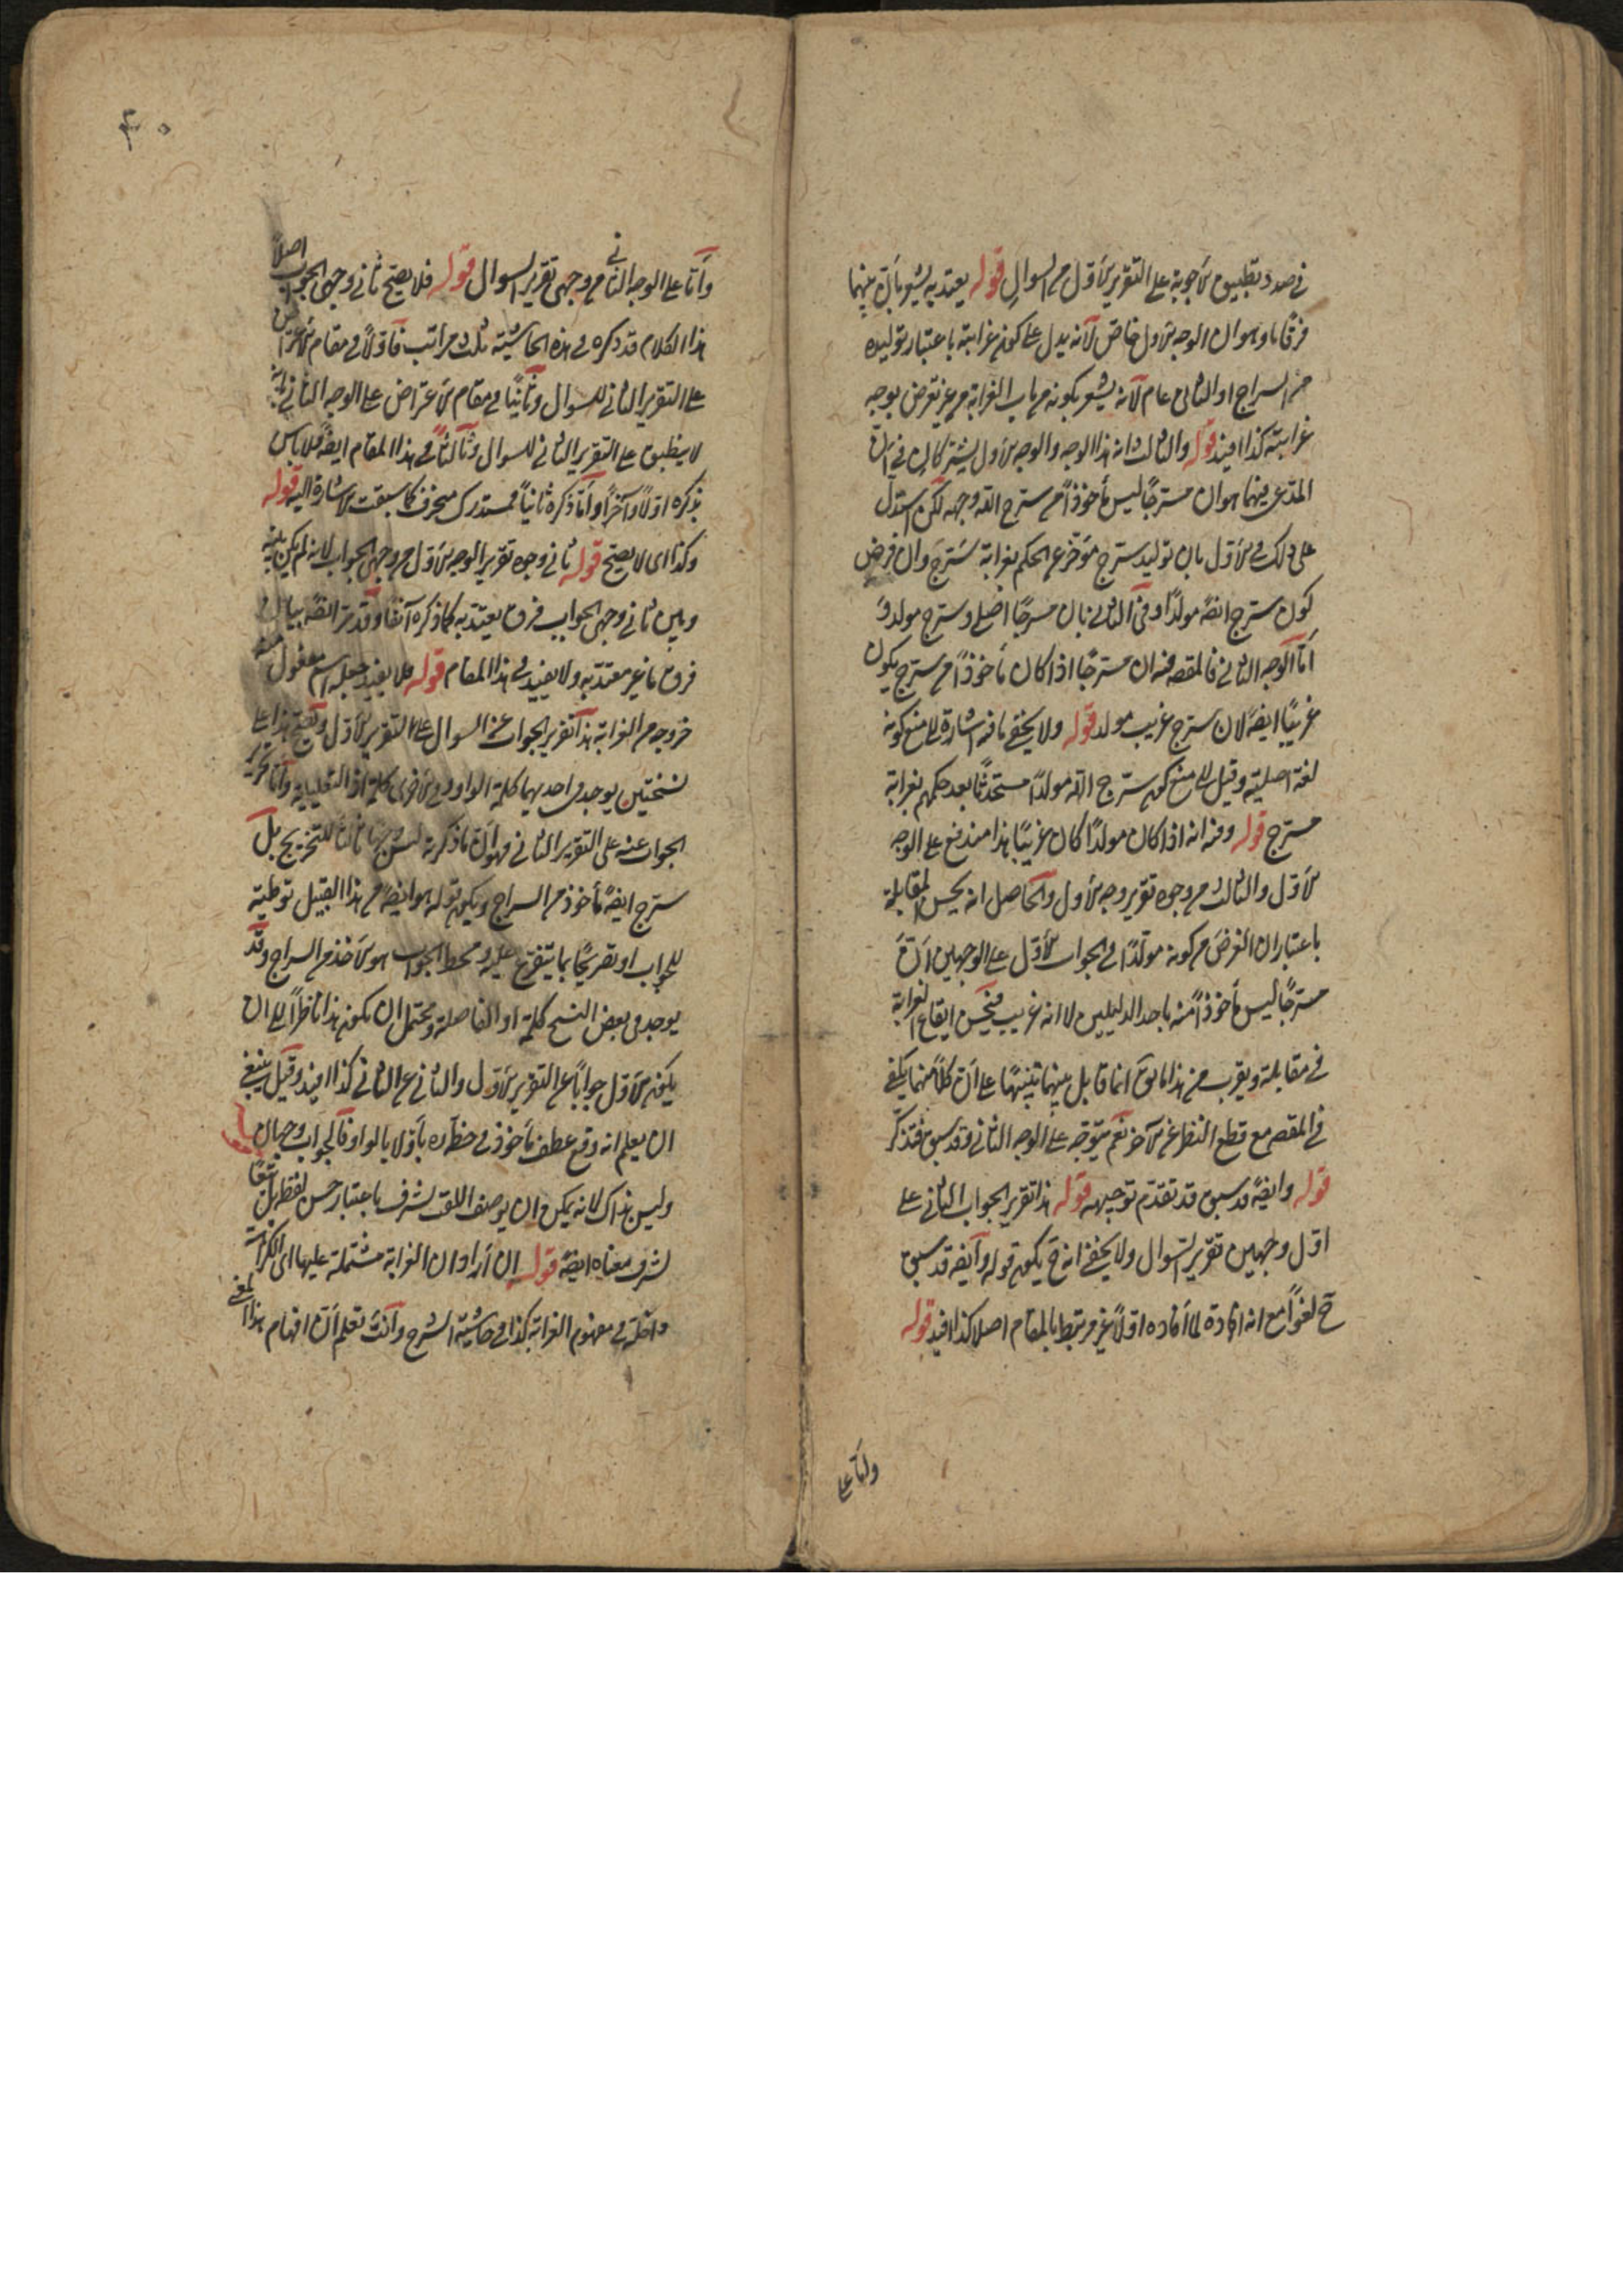 في صدد تطبيق الاجوبة على التقرير الاول من السوال قوله يعتد به يشير بان بينهما
فرقا ما وهو ان الوجه الاول خاص لانه يدل على كون غرابته باعتبار توليده
من السراج او الثانى عام لانه يشعر بكونه من باب الغرابة من غير تعرض بوجه
غرابته كذا افيد قوله والثالث انه هذا الوجه والوجه الاول يشتركان في ان
المدعى بينهما هو ان مسرجًا ليس مأخوذًا من سرج الله وجهه لكن استدل
على ذلك في الاول بان توليد سرج مؤخر عن الحكم بغرابة مسرج وان فرض
كون سرج ايضًا مولدًا وفي الثاني بان مسرجًا اصلي وسرج مولد و
اما الوجه الثاني فالمقصد منه ان مسرجًا اذا كان مأخوذًا من سرج يكون
غريبًا ايضًا لان سرج غريب مولد قوله ولا يخفى ما فيه اشارة الى منع كونه
لغة اصلية وقيل الى منع كون سرج الله مولدًا مستحدثًا بعد حكمهم بغرابة
مسرج قوله ومنه انه اذا كان مولدًا كان غريبًا هذا مندفع على الوجه
الاول والثالث من وجوه تقرير وجه الاول والحاصل انه يحسن المقابلة
باعتبار ان الغرض من كونه مولدًا في الجواب الاول على الوجهين ان
مسرجًا ليس مأخوذًا منه باحد الدليلين لا انه غريب فيحسن ايقاع الغرابة
في مقابلته ويقرب من هذا ما يق انما قابل بينهما تنبيهًا على ان كلًا منهما يكفي
في المقصد مع قطع النظر عن الآخر نعم يتوجه على الوجه الثاني وقد سبق فتذكر
قوله وايضًا قد سبق قد تقدم توجيهه قوله هذا تقرير الجواب الثاني على
اول وجهين تقرير السوال ولا يخفى انه ح يكون قوله وايضه قد سبق
ح لغوًا مع انه افادة لما افاده اولًا غير مرتبط بالمقام اصلا كذا افيد قوله
واما على
٤٠
واما على الوجه الثاني من وجهى تقرير السوال قوله فلا يصح ثاني وجهى الجواب اصلًا
هذا الكلام قد ذكره في هذه الحاشية ثلث مراتب فاولًا في مقام الاعتراض
على التقرير الثاني للسوال وثانيًا في مقام الاعتراض على الوجه الثاني بانه
لا ينطبق على التقرير الثاني للسوال وثالثًا في هذا المقام ايضًا فلا باس
بذكره اولًا وآخرًا واما ذكره ثانيًا فمستدرك منحرف كما سبقت الاشارة اليه قوله
وكذا اى لا يصح قوله ثاني وجوه تقرير الوجه الاول من وجهى الجواب لانه لم يكن بينه
وبين ثاني وجهى الجواب فرق يعتد به كما ذكره آنفًا وقد مر ايضًا بيان
فرق ما غير معتد به ولا يفيد في هذا المقام قوله فلا يفيد جعله اسم مفعول منه
خروجه من الغرابة هذا تقرير الجواب عن السوال على التقرير الاول ويصح هذا على
نسختين يوجد في احديهما كلمة الواو وفي الاخرى كلمة اذ التعليلية واما تحرير
الجواب عنه على التقرير الثاني فهو ان ما ذكرته ليس وجهًا ثالثًا للتخريج بل
سرج ايضًا مأخوذ من السراج ويكون قوله هو ايضًا من هذا القبيل توطئة
للجواب او تصريحًا بما يتفرع عليه ومحط الجواب هو الاخذ من السراج وقد
يوجد في بعض النسخ كلمة او الفاصلة ويحتمل ان يكون هذا ناظرًا الى ان
يكون الاول جوابًا عن التقرير الاول والثاني عن الثاني كذا افيد وقيل ينبغي
ان يعلم انه وقع عطف مأخوذ في خطه ره باو لا بالواو فالجواب وجهان
وليس بذاك لانه يمكن ان يوصف اللقب بشرف باعتبار حسن لفظه بل
لشرف معناه ايضًا قوله ان اراد ان الغرابة مشتملة عليها اى الكراهة
داخلة في مفهوم الغرابة كذا في حاشية الشرح وانت تعلم ان افهام هذا المعنى